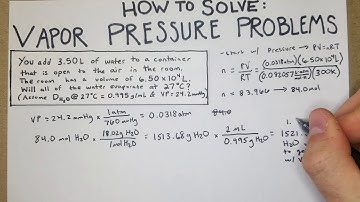 HOW TO SOLVE:
VAPOR PRESSURE PROBLEMS
You add 3.50L of water to a container
that is open to the air in the room.
The room has a volume of 6.50 x 10⁴ L.
Will all of the water evaporate at 27°C?
(Assume D H₂O @ 27°C = 0.995 g/mL & VP = 24.2 mmHg)
-start w/ Pressure → PV=nRT
n = PV/RT = (0.0318atm)(6.50x10⁴L) / (0.082057 L·atm/mol·K)(300K)
n = 83.960 → 84.0mol
VP = 24.2 mmHg x 1atm/760mmHg = 0.0318atm
84.0 mol H₂O x 18.02g H₂O/1mol H₂O = 1513.68g H₂O x 1 mL/0.995g H₂O =
1521.
H₂O
to
w/ V